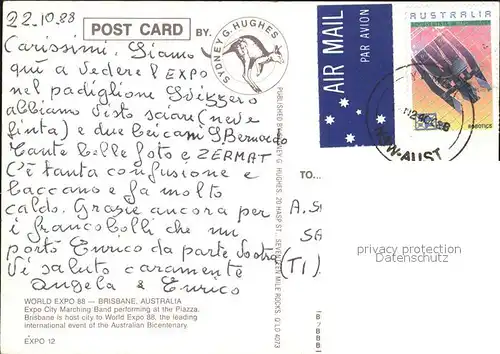 22.10.88
POST CARD
BY:
SYDNEY G. HUGHES
Carissimi, Siamo
qui a vedere l'EXPO
nel padiglione Svizzero
abbiamo visto sciare (neve
finta) e due bei cani S. Bernardo
Tante belle foto e ZERMAT
C'è tanta confusione e
baccano e fa molto
caldo. Grazie ancora per
i francobolli che mi
portò Enrico da parte
Vi saluto caramente
Angela & Enrico
WORLD EXPO 88 — BRISBANE, AUSTRALIA
Expo City Marching Band performing at the Piazza.
Brisbane is host city to World Expo 88, the leading
international event of the Australian Bicentenary.
EXPO 12
PUBLISHED BY SYDNEY G. HUGHES, 29 HASP ST., SEVENTEEN MILE ROCKS, Q'LD 4073
AIR MAIL
PAR AVION
AUSTRALIA
ROBOTICS
NSW-AUST
TO...
(TI)
privacy protection
Datenschutz